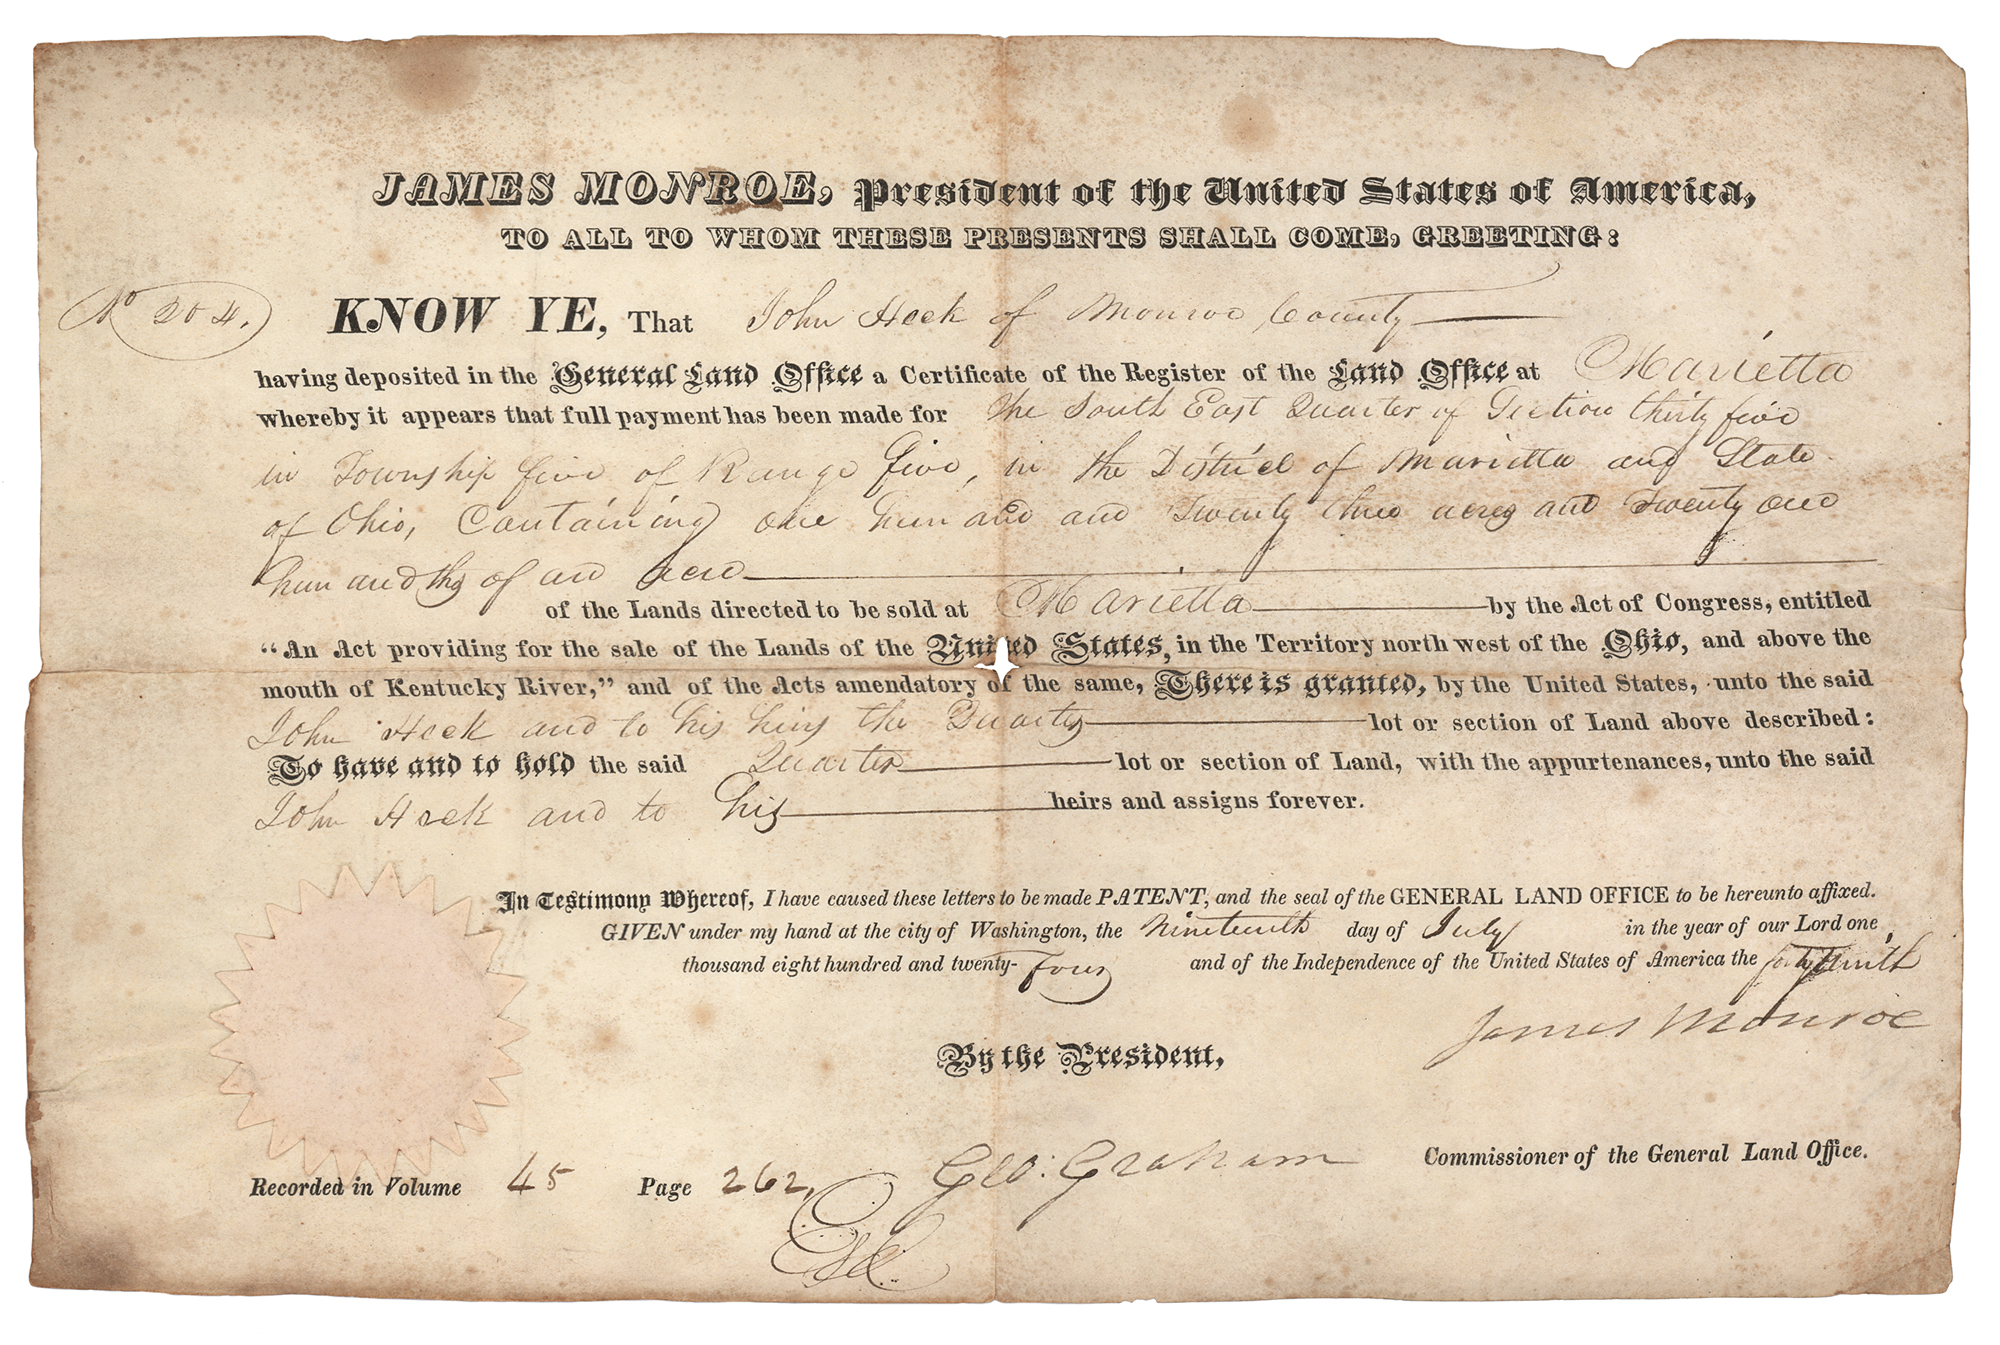 JAMES MONROE, President of the United States of America,
TO ALL TO WHOM THESE PRESENTS SHALL COME, GREETING:
No 204.
KNOW YE, That John Heck of Monroe County
having deposited in the General Land Office a Certificate of the Register of the Land Office at Marietta
whereby it appears that full payment has been made for the South East Quarter of Section thirty five
in Township five of Range five, in the District of Marietta and State
of Ohio, Containing one hundred and Twenty three acres and Twenty one
hundredths of an acre
of the Lands directed to be sold at Marietta by the Act of Congress, entitled
“An Act providing for the sale of the Lands of the United States, in the Territory north west of the Ohio, and above the
mouth of Kentucky River,” and of the Acts amendatory of the same, There is granted, by the United States, unto the said
John Heck and to his heirs the Quarter lot or section of Land above described:
To have and to hold the said Quarter lot or section of Land, with the appurtenances, unto the said
John Heck and to his heirs and assigns forever.
In Testimony Whereof, I have caused these letters to be made PATENT, and the seal of the GENERAL LAND OFFICE to be hereunto affixed.
GIVEN under my hand at the city of Washington, the Nineteenth day of July in the year of our Lord one
thousand eight hundred and twenty-Four and of the Independence of the United States of America the forty Ninth
James Monroe
By the President,
Geo: Graham Commissioner of the General Land Office.
Recorded in Volume 45 Page 262,